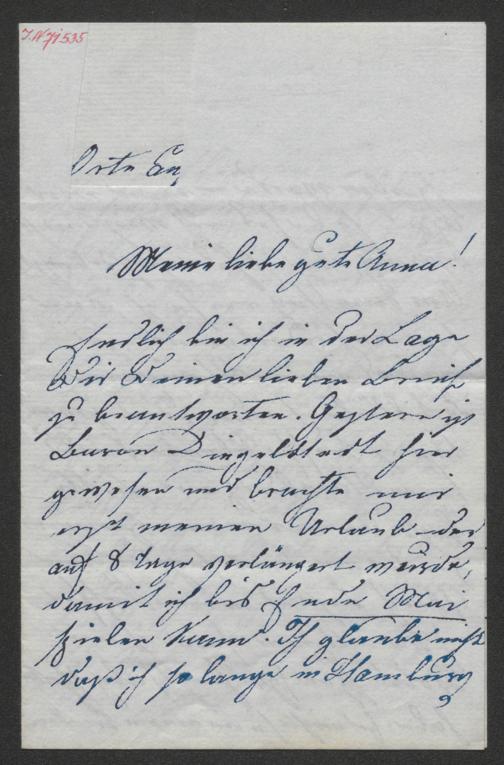 J.N. 71535
Orte Eq
Meine liebe gute Anna!
Endlich bin ich in der Lage
Dir Deinen lieben Brief
zu beantworten. Gestern ist
Baron Dingelstedt hier
gewesen und brachte mir
erst meinen Urlaub der
auf 8 Tage verlängert wurde,
damit ich bis Ende Mai
spielen kann. Ich glaube nicht
daß ich so lange in Hamburg